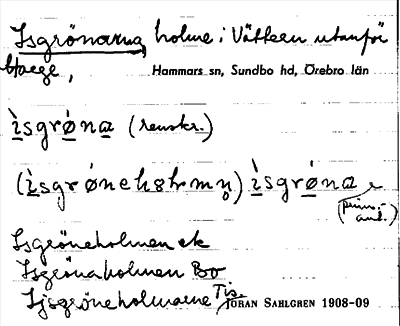 Isgrönarna, holme i Vättern utanför
Harge,
Hammars sn, Sundbo hd, Örebro län
ìsgrø̀na (renskr.)
(ìsgrøneholmn) ìsgrøna
Isgröneholmen ek
Isgrönaholmen Bo
Isgröneholmarne Tis.
JÖRAN SAHLGREN 1908-09